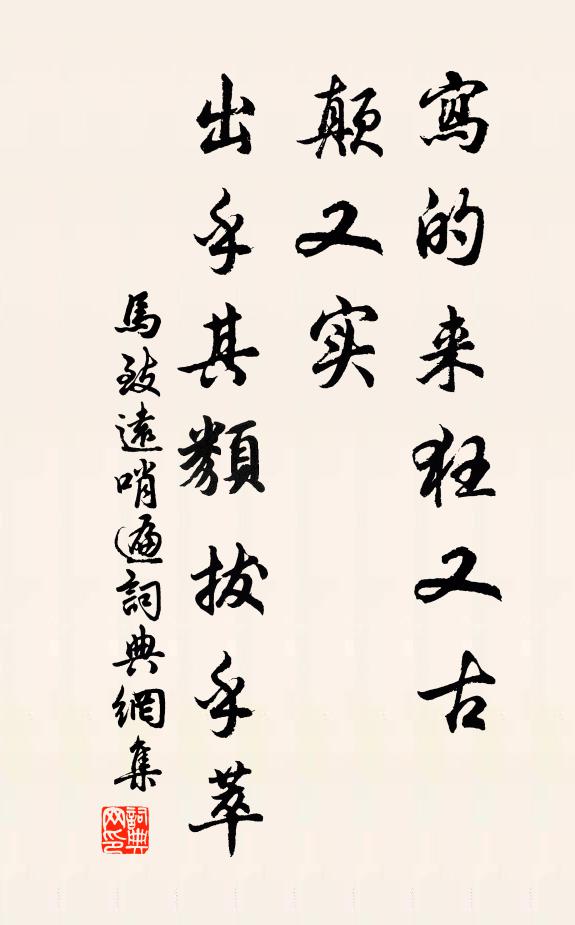 寫的来狂又古
颠又实
出乎其類拔乎萃
馬致遠哨遍詞典網集
詞典网印